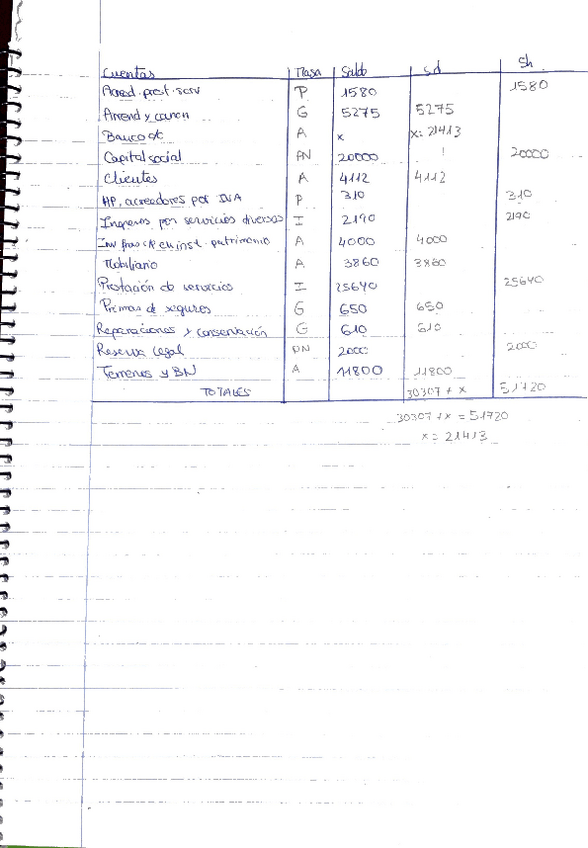 Cuentas Masa Saldo Sd Sh
Acred. prest. serv P 1580 1580
Arrend y canon G 5275 5275
Banco c/c A x x= 21413
Capital social PN 20000 20000
Clientes A 4112 4112
HP, acreedores por IVA P 310 310
Ingresos por servicios diversos I 2190 2190
Inv fras c/p en inst. patrimonio A 4000 4000
Mobiliario A 3860 3860
Prestación de servicios I 25640 25640
Primas de seguros G 650 650
Reparaciones y conservación G 610 610
Reserva legal PN 2000 2000
Terrenos y BN A 11800 11800
TOTALES 30307 + x 51720
30307 + x = 51720
x = 21413